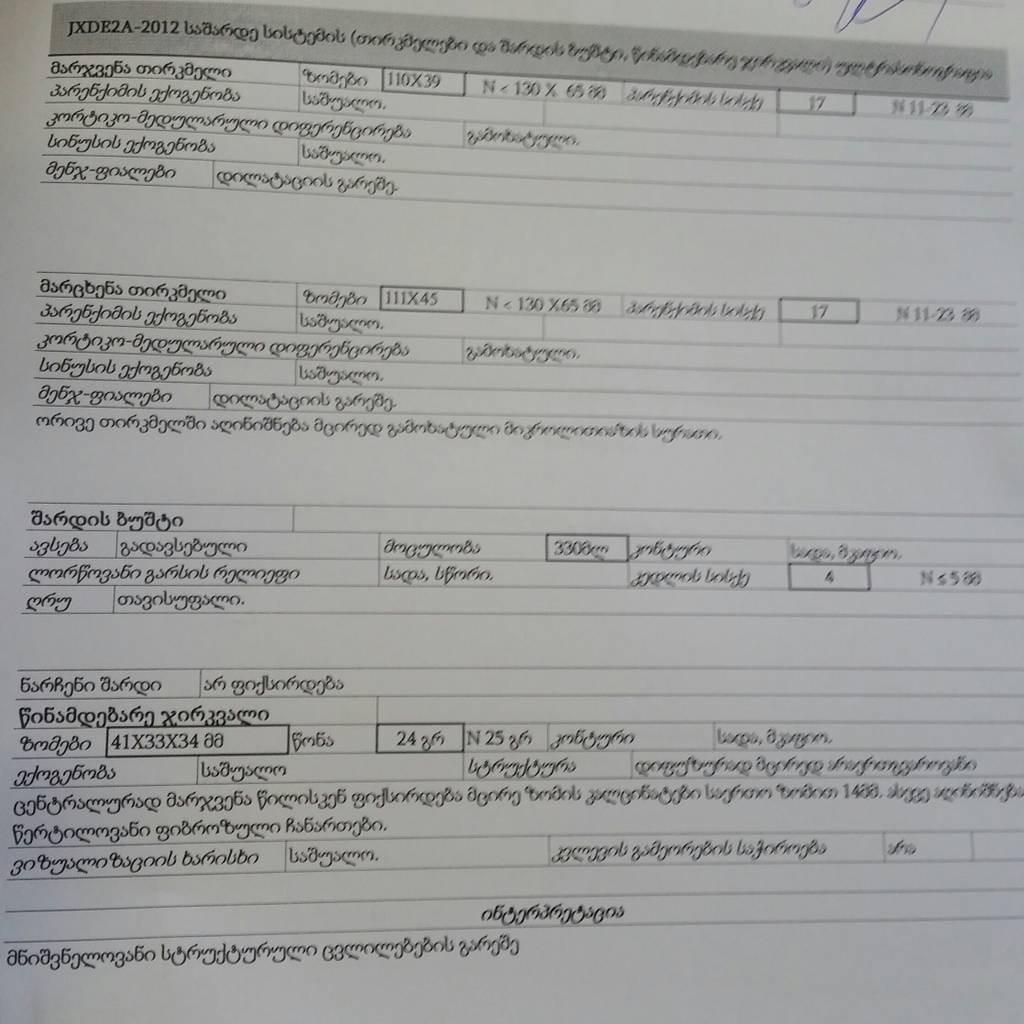 JXDE2A-2012 საშარდე სისტემის (თირკმელები და შარდის ბუშტი, წინამდებარე ჯირკვალი) ულტრასონოგრაფია
მარჯვენა თირკმელი ზომები 110X39 N < 130 X 65 მმ პარენქიმის სისქე 17 N 11-23 მმ
პარენქიმის ექოგენობა საშუალო.
კორტიკო-მედულარული დიფერენცირება გამოხატული.
სინუსის ექოგენობა საშუალო.
მენჯ-ფიალები დილატაციის გარეშე.
მარცხენა თირკმელი ზომები 111X45 N < 130 X65 მმ პარენქიმის სისქე 17 N 11-23 მმ
პარენქიმის ექოგენობა საშუალო.
კორტიკო-მედულარული დიფერენცირება გამოხატული.
სინუსის ექოგენობა საშუალო.
მენჯ-ფიალები დილატაციის გარეშე.
ორივე თირკმელში აღინიშნება მცირედ გამოხატული მიკროლითიაზის სურათი.
შარდის ბუშტი
ავსება გადავსებული მოცულობა 330მლ კონტური სადა, მკვეთრი.
ლორწოვანი გარსის რელიეფი სადა, სწორი. კედლის სისქე 4 N ≤ 5 მმ
ღრუ თავისუფალი.
ნარჩენი შარდი არ ფიქსირდება
წინამდებარე ჯირკვალი
ზომები 41X33X34 მმ წონა 24 გრ N 25 გრ კონტური სადა, მკვეთრი.
ექოგენობა საშუალო სტრუქტურა დიფუზურად მცირედ არაერთგვაროვანი
ცენტრალურად მარჯვენა წილისკენ ფიქსირდება მცირე ზომის კალცინატები საერთო ზომით 14მმ. ასევე აღინიშნება
წერტილოვანი ფიბროზული ჩანართები.
ვიზუალიზაციის ხარისხი საშუალო. კვლევის გამეორების საჭიროება არა
ინტერპრეტაცია
მნიშვნელოვანი სტრუქტურული ცვლილებების გარეშე